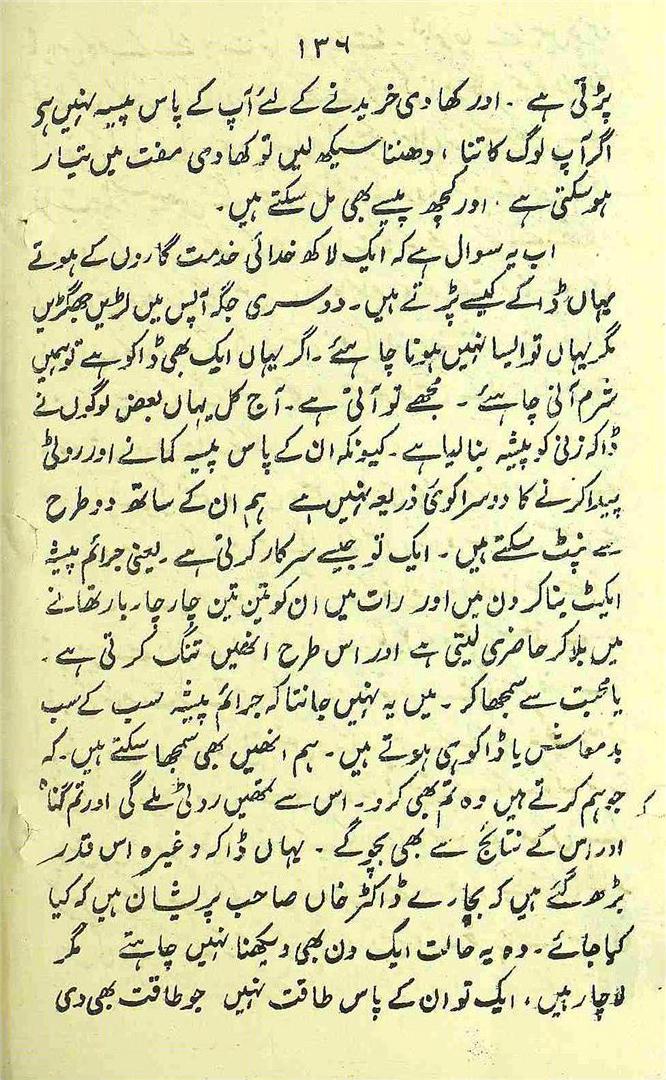 ۱۳۶
پڑتی ہے ۔ اور کھادی خریدنے کے لئے آپ کے پاس پیسہ نہیں ہے
اگر آپ لوگ کاتنا ، دھننا سیکھ لیں تو کھادی مفت میں تیار
ہوسکتی ہے ۔ اور کچھ پیسے بھی مل سکتے ہیں۔
اب یہ سوال ہے کہ ایک لاکھ خدائی خدمت گاروں کے ہوتے
یہاں ڈاکے کیسے پڑتے ہیں۔ دوسری جگہ آپس میں لڑیں جھگڑیں
مگر یہاں تو ایسا نہیں ہونا چاہئے ۔ اگر یہاں ایک بھی ڈاکو ہے تو ہمیں
شرم آنی چاہئے ۔ مجھے تو آتی ہے ۔ آج کل یہاں بعض لوگوں نے
ڈاکہ زنی کو پیشہ بنا لیا ہے ۔ کیونکہ ان کے پاس پیسہ کمانے اور روٹی
پیدا کرنے کا دوسرا کوئی ذریعہ نہیں ہے ہم ان کے ساتھ دو طرح
سے نپٹ سکتے ہیں ۔ ایک تو جیسے سرکار کرتی ہے ۔ یعنی جرائم پیشہ
ایکٹ بناکر دن میں اور رات میں ان کو تین تین چار چار بار تھانے
میں بلا کر حاضری لیتی ہے اور اس طرح انھیں تنگ کرتی ہے ۔
یا محبت سے سمجھا کر ۔ میں یہ نہیں جانتا کہ جرائم پیشہ سب کے سب
بدمعاش یا ڈاکو ہی ہوتے ہیں ۔ ہم انھیں بھی سمجھا سکتے ہیں ۔ کہ
جو ہم کرتے ہیں وہ تم بھی کرو ۔ اس سے تمھیں روٹی ملے گی اور تم گناہ
اور اس کے نتائج سے بھی بچوگے ۔ یہاں ڈاکہ وغیرہ اس قدر
بڑھ گئے ہیں کہ بچارے ڈاکٹر خاں صاحب پریشان ہیں کہ کیا
کیا جائے ۔ وہ یہ حالت ایک دن بھی دیکھنا نہیں چاہتے مگر
لاچار ہیں ، ایک تو ان کے پاس طاقت نہیں جو طاقت بھی دی